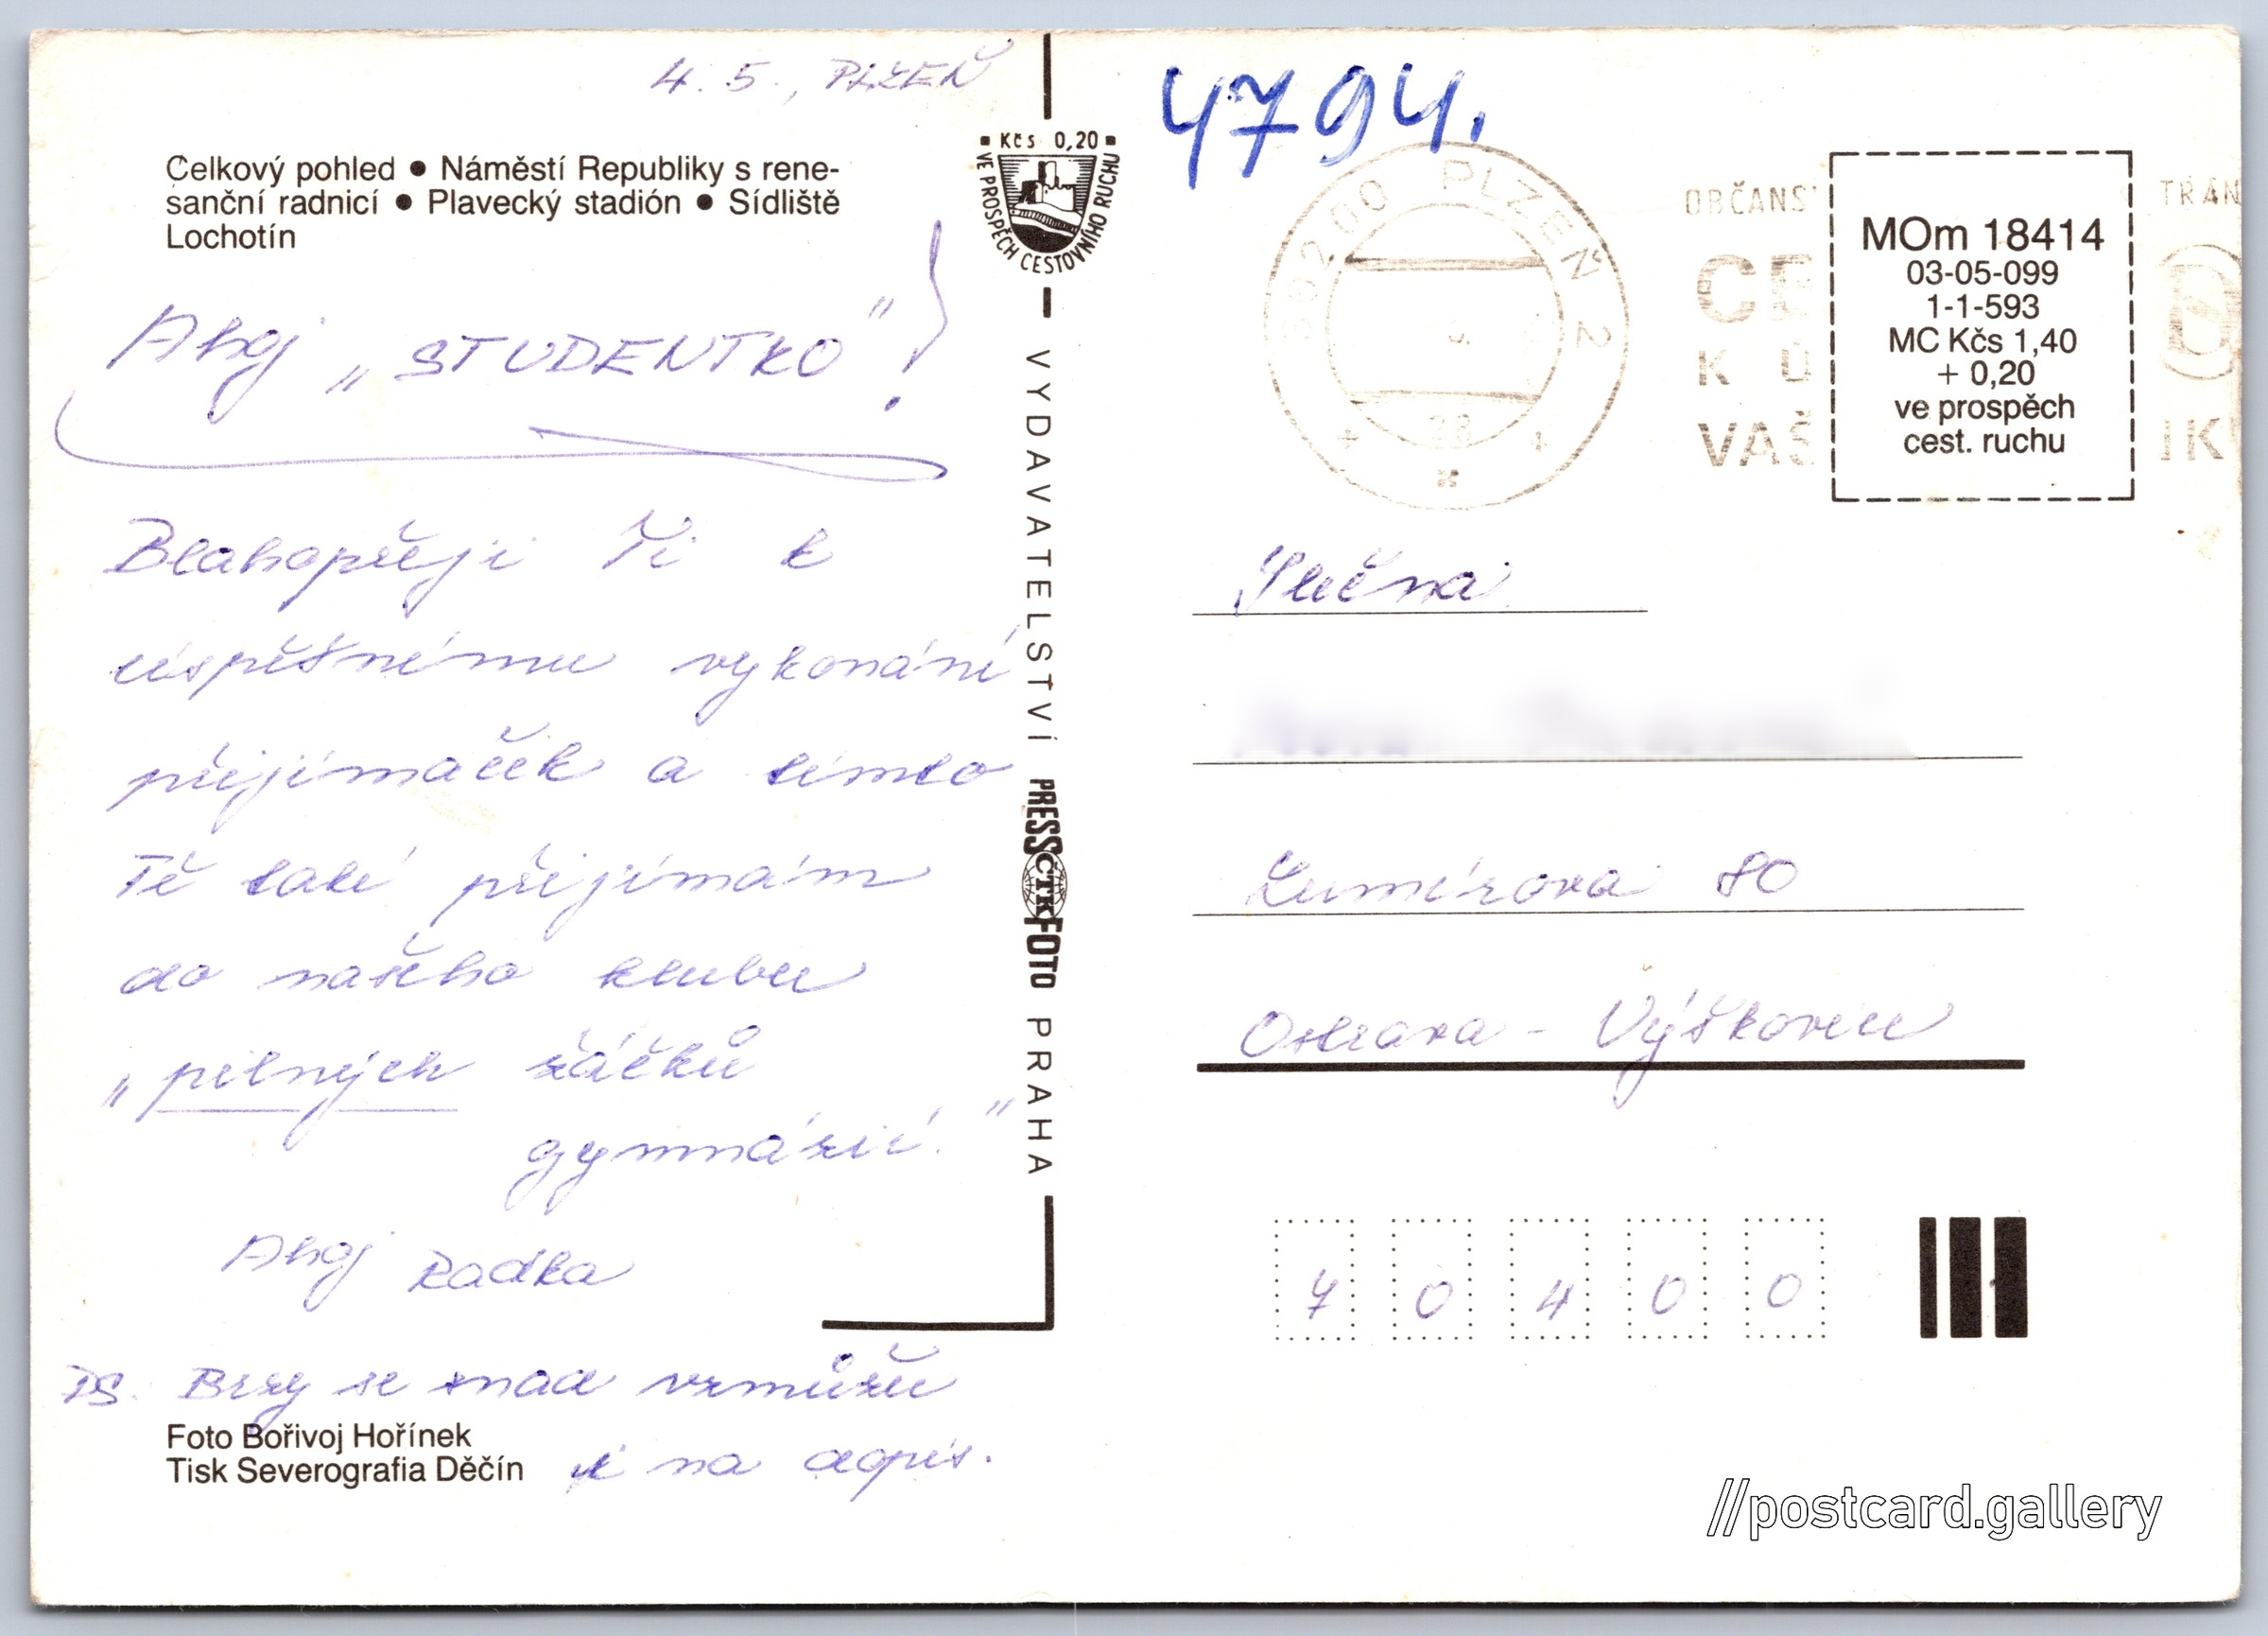 4. 5., PLZEŇ
Celkový pohled ● Náměstí Republiky s rene-
sanční radnicí ● Plavecký stadión ● Sídliště
Lochotín
Ahoj „STUDENTKO"!
Blahopřeji Ti k
úspěšnému vykonání
přijímaček a tímto
Tě také přijímám
do našeho klubu
„pilných žáčků
gymnázií."
Ahoj Radka
PS. Brzy se snad vzmůžu
i na dopis.
Foto Bořivoj Hořínek
Tisk Severografia Děčín
Kčs 0,20
VE PROSPĚCH CESTOVNÍHO RUCHU
VYDAVATELSTVÍ PRESSFOTO PRAHA
ČTK
4794.
PLZEŇ 2
28
OBČANS TRAN
CE
K Ú
VAŠ IK
MOm 18414
03-05-099
1-1-593
MC Kčs 1,40
+ 0,20
ve prospěch
cest. ruchu
Slečna
Lumírova 80
Ostrava - Výškovice
70400
//postcard.gallery